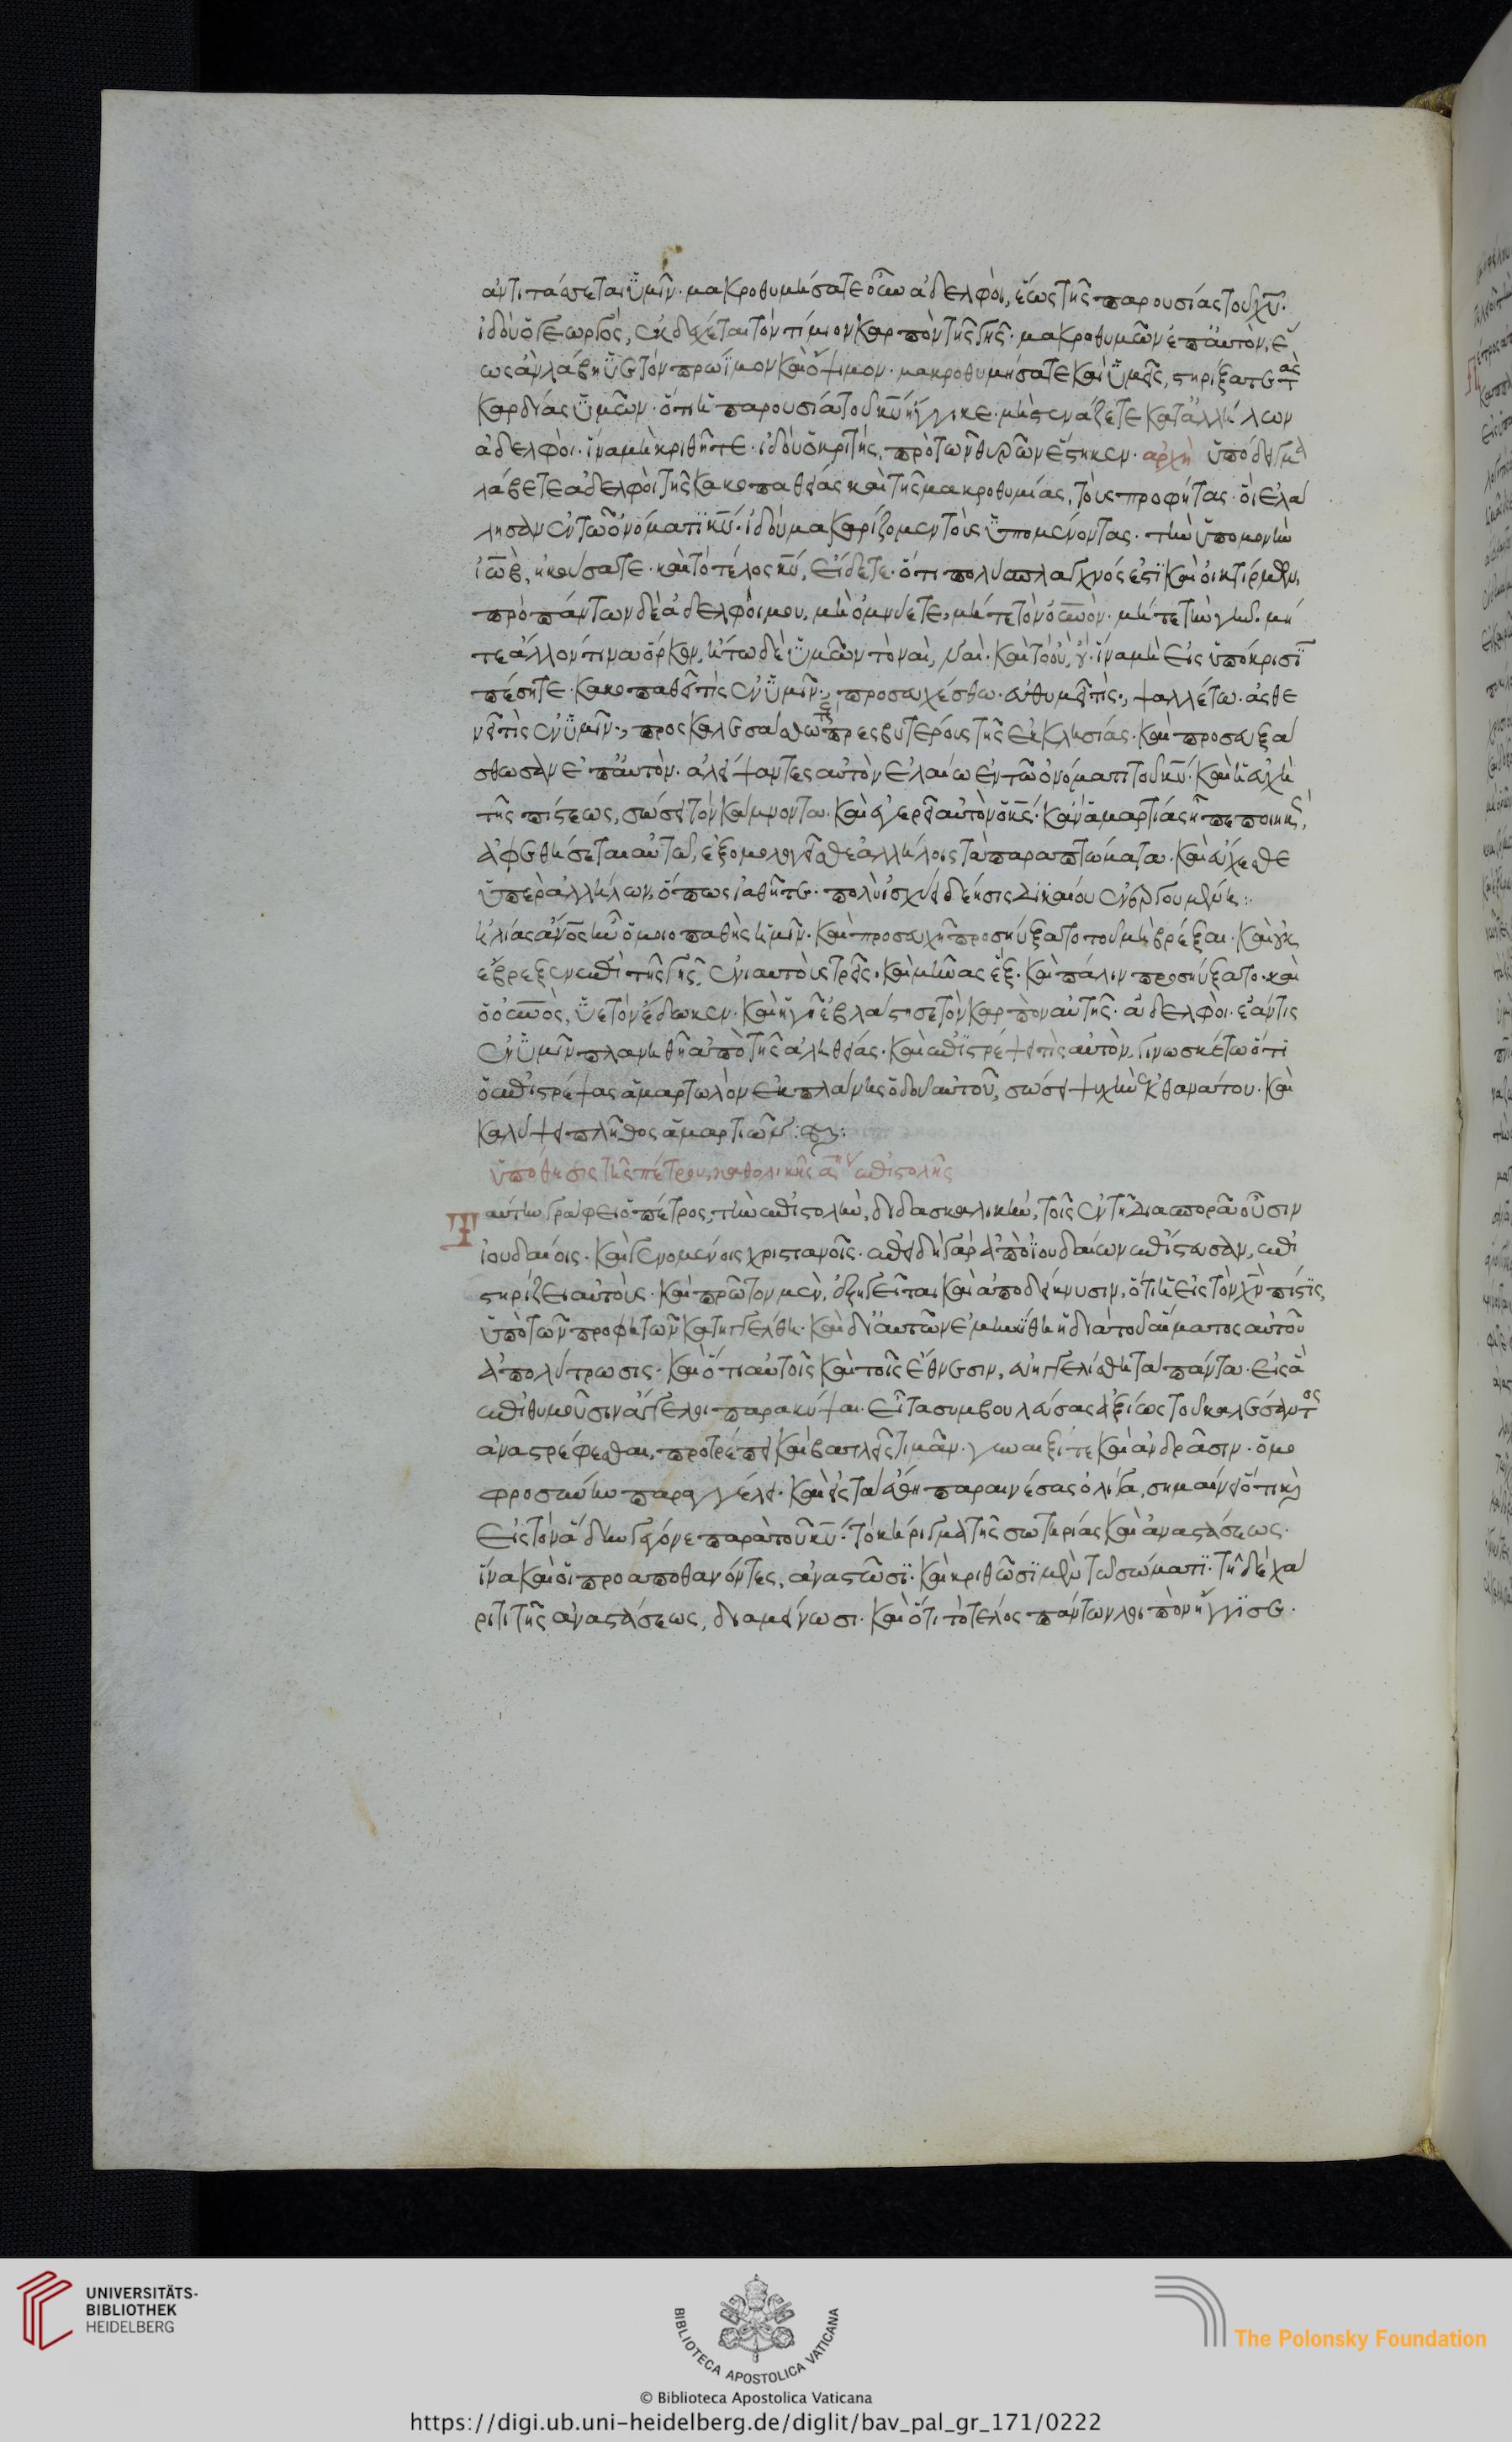 ἀντιτάσσεται ὑμῖν· μακροθυμήσατε οὖν ἀδελφοὶ, ἕως τῆς παρουσίας τοῦ χυ·
ἰδοὺ ὁ γεωργός, ἐκδέχεται τὸν τίμιον καρπὸν τῆς γῆς· μακροθυμῶν ἐπ' αὐτὸν, ἕ
ως ἂν λάβη ὑετὸν πρώϊμον καὶ ὄψιμον· μακροθυμήσατε καὶ ὑμεῖς, στηρίξατε τὰς
καρδίας ὑμῶν· ὅτι ἡ παρουσία τοῦ κυ ἤγγικε· μὴ στενάζετε κατ' ἀλλήλων
ἀδελφοὶ· ἵνα μὴ κριθῆτε· ἰδοὺ ὁ κριτής, πρὸ τῶν θυρῶν ἕστηκεν· αρχὴ ὑπόδειγμα
λάβετε ἀδελφοὶ τῆς κακοπαθείας καὶ τῆς μακροθυμίας, τοὺς προφήτας· οἳ ἐλά
λησαν ἐν τῶ ὀνόματι κυ· ἰδοὺ μακαρίζομεν τοὺς ὑπομένοντας· τὴν ὑπομονὴν
ἰὼβ, ἠκούσατε· καὶ τὸ τέλος κυ, εἴδετε· ὅτι πολύσπλαγχνός ἐστι καὶ οἰκτίρμων,
πρὸ πάντων δὲ ἀδελφοί μου, μὴ ὀμνύετε, μήτε τὸν ουνον· μήτε τὴν γῆν· μή
τε ἄλλόν τινα ὅρκον, ἤτω δὲ ὑμῶν τὸ ναὶ, ναὶ· καὶ τὸ οὒ, οὔ· ἵνα μὴ εἰς ὑπόκρισϊ
πέσητε· κακοπαθεῖ τὶς ἐν ὑμῖν·, προσευχέσθω· εὐθυμεῖ τὶς·, ψαλλέτω· ἀσθε
νεῖ τὶς ἐν ὑμῖν·, προσκαλεσάσθω τοὺς πρεσβυτέρους τῆς ἐκκλησίας· καὶ προσευξά
σθωσαν ἐπ' αὐτὸν· ἀλείψαντες αὐτὸν ἐλαίω ἐν τῶ ὀνόματι τοῦ κυ· καὶ ἡ εὐχὴ
τῆς πίστεως, σώσει τὸν κάμνοντα· καὶ ἐγερεῖ αὐτὸν ὁ κς· κἂν ἁμαρτίας ἦ πεποιηκώς,
ἀφεθήσεται αὐτῶ, ἐξομολογεῖσθε ἀλλήλοις τὰ παραπτώματα· καὶ εὔχεσθε
ὑπὲρ ἀλλήλων, ὅπως ἰαθῆτε· πολὺ ἰσχύει δέησις δικαίου ἐνεργουμένη:
ἠλίας ανος ἦν ὁμοιοπαθὴς ἡμῖν· καὶ προσευχῆ προσηύξατο τοῦ μὴ βρέξαι· καὶ οὐκ
ἔβρεξεν ἐπὶ τῆς γῆς, ἐνιαυτοὺς τρεῖς· καὶ μῆνας ἕξ· καὶ πάλιν προσηύξατο· καὶ
ὁ ουνος, ὑετὸν ἔδωκεν· καὶ ἡ γῆ ἐβλάστησε τὸν καρπὸν αὐτῆς· ἀδελφοὶ· ἐάν τις
ἐν ὑμῖν πλανηθῆ ἀπὸ τῆς ἀληθείας· καὶ ἐπιστρέψει τὶς αὐτὸν, γινωσκέτω ὅτι
ὁ ἐπιστρέψας ἁμαρτωλὸν ἐκ πλάνης ὁδοῦ αὐτοῦ, σώσει ψυχὴν ἐκ θανάτου· καὶ
καλύψει πλῆθος ἁμαρτιῶν:
ὑπόθησις τῆς πέτρου, καθολικῆς αης ἐπιστολῆς
Ταύτην γράφει ὁ πέτρος, τὴν ἐπιστολὴν, διδασκαλικὴν, τοῖς ἐν τῆ διασπορᾶ οὖσιν
ἰουδαίοις· καὶ γενομένοις χριστιανοῖς· ἐπειδὴ γὰρ ἀπὸ ἰουδαίων ἐπίστευσαν, ἐπι
στηρίζει αὐτοὺς· καὶ πρῶτον μὲν, ἐξηγεῖται καὶ ἀποδείκνυσιν, ὅτι ἡ εἰς τὸν χν πίστις,
ὑπὸ τῶν προφητῶν κατηγγέλθη· καὶ δι' αὐτῶν ἐμηνύθη ἡ διὰ τοῦ αἵματος αὐτοῦ
ἀπολύτρωσις· καὶ ὅτι αὐτοῖς καὶ τοῖς ἔθνεσιν, εὐηγγελίσθη τὰ πάντα· εἰς ἃ
ἐπιθυμοῦσιν ἄγγελοι παρακύψαι· εἶτα συμβουλεύσας ἀξίως τοῦ καλέσαντος
ἀναστρέφεσθαι, προτρέπει καὶ βασιλεῖς τιμᾶν· γυναιξί τε καὶ ἀνδράσιν· ὁμο
φροσύνην παραγγέλει· καὶ εἰς τὰ ἤθη παραινέσας ὀλίγα, σημαίνει ὅτι καὶ
εἰς τὸν ἅδην γέγονε παρὰ τοῦ κυ· τὸ κήρυγμα τῆς σωτηρίας καὶ ἀναστάσεως·
ἵνα καὶ οἱ προαποθανόντες, ἀναστῶσι· καὶ κριθῶσι μὲν τῶ σώματι· τῆ δὲ χά
ριτι τῆς ἀναστάσεως, διαμείνωσι· καὶ ὅτι τὸ τέλος πάντων λοιπὸν ἤγγισε·
UNIVERSITÄTS-
BIBLIOTHEK
HEIDELBERG
BIBLIOTECA APOSTOLICA VATICANA
The Polonsky Foundation
© Biblioteca Apostolica Vaticana
https://digi.ub.uni-heidelberg.de/diglit/bav_pal_gr_171/0222